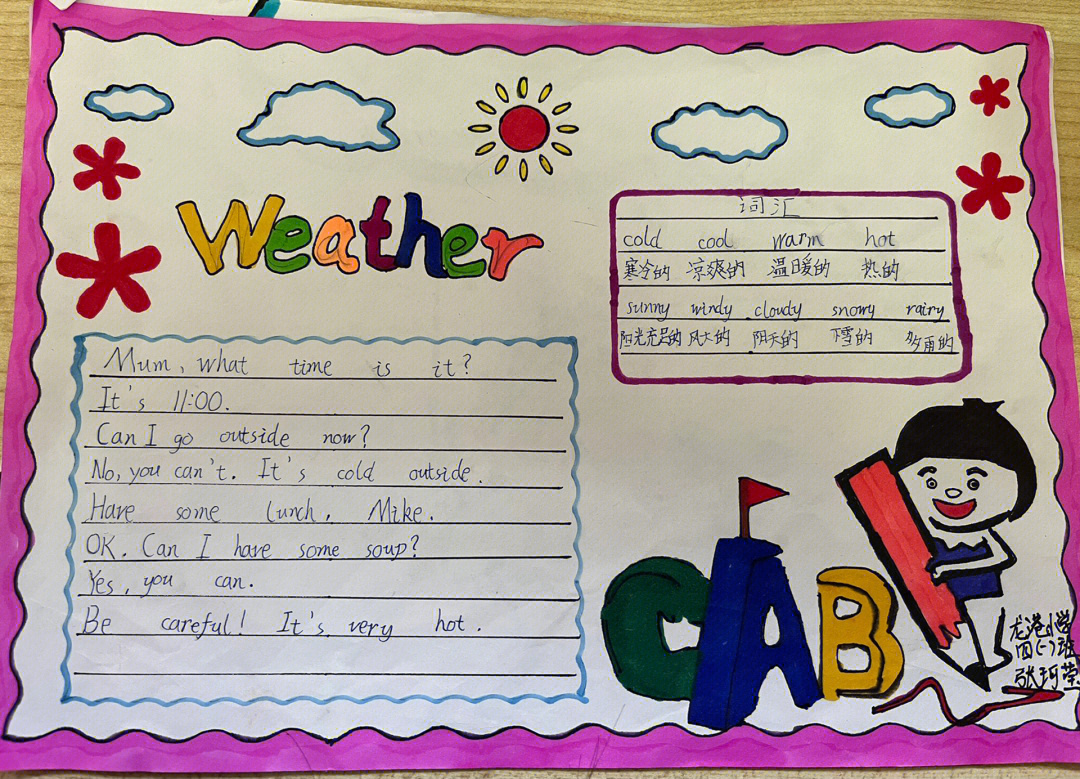 Weather
词汇
cold cool warm hot
寒冷的 凉爽的 温暖的 热的
sunny windy cloudy snowy rainy
阳光充足的 风大的 阴天的 下雪的 多雨的
Mum, what time is it?
It's 11:00.
Can I go outside now?
No, you can't. It's cold outside.
Have some lunch, Mike.
OK. Can I have some soup?
Yes, you can.
Be careful! It's very hot.
CAB
龙港小学
四(一)班
张珂荣